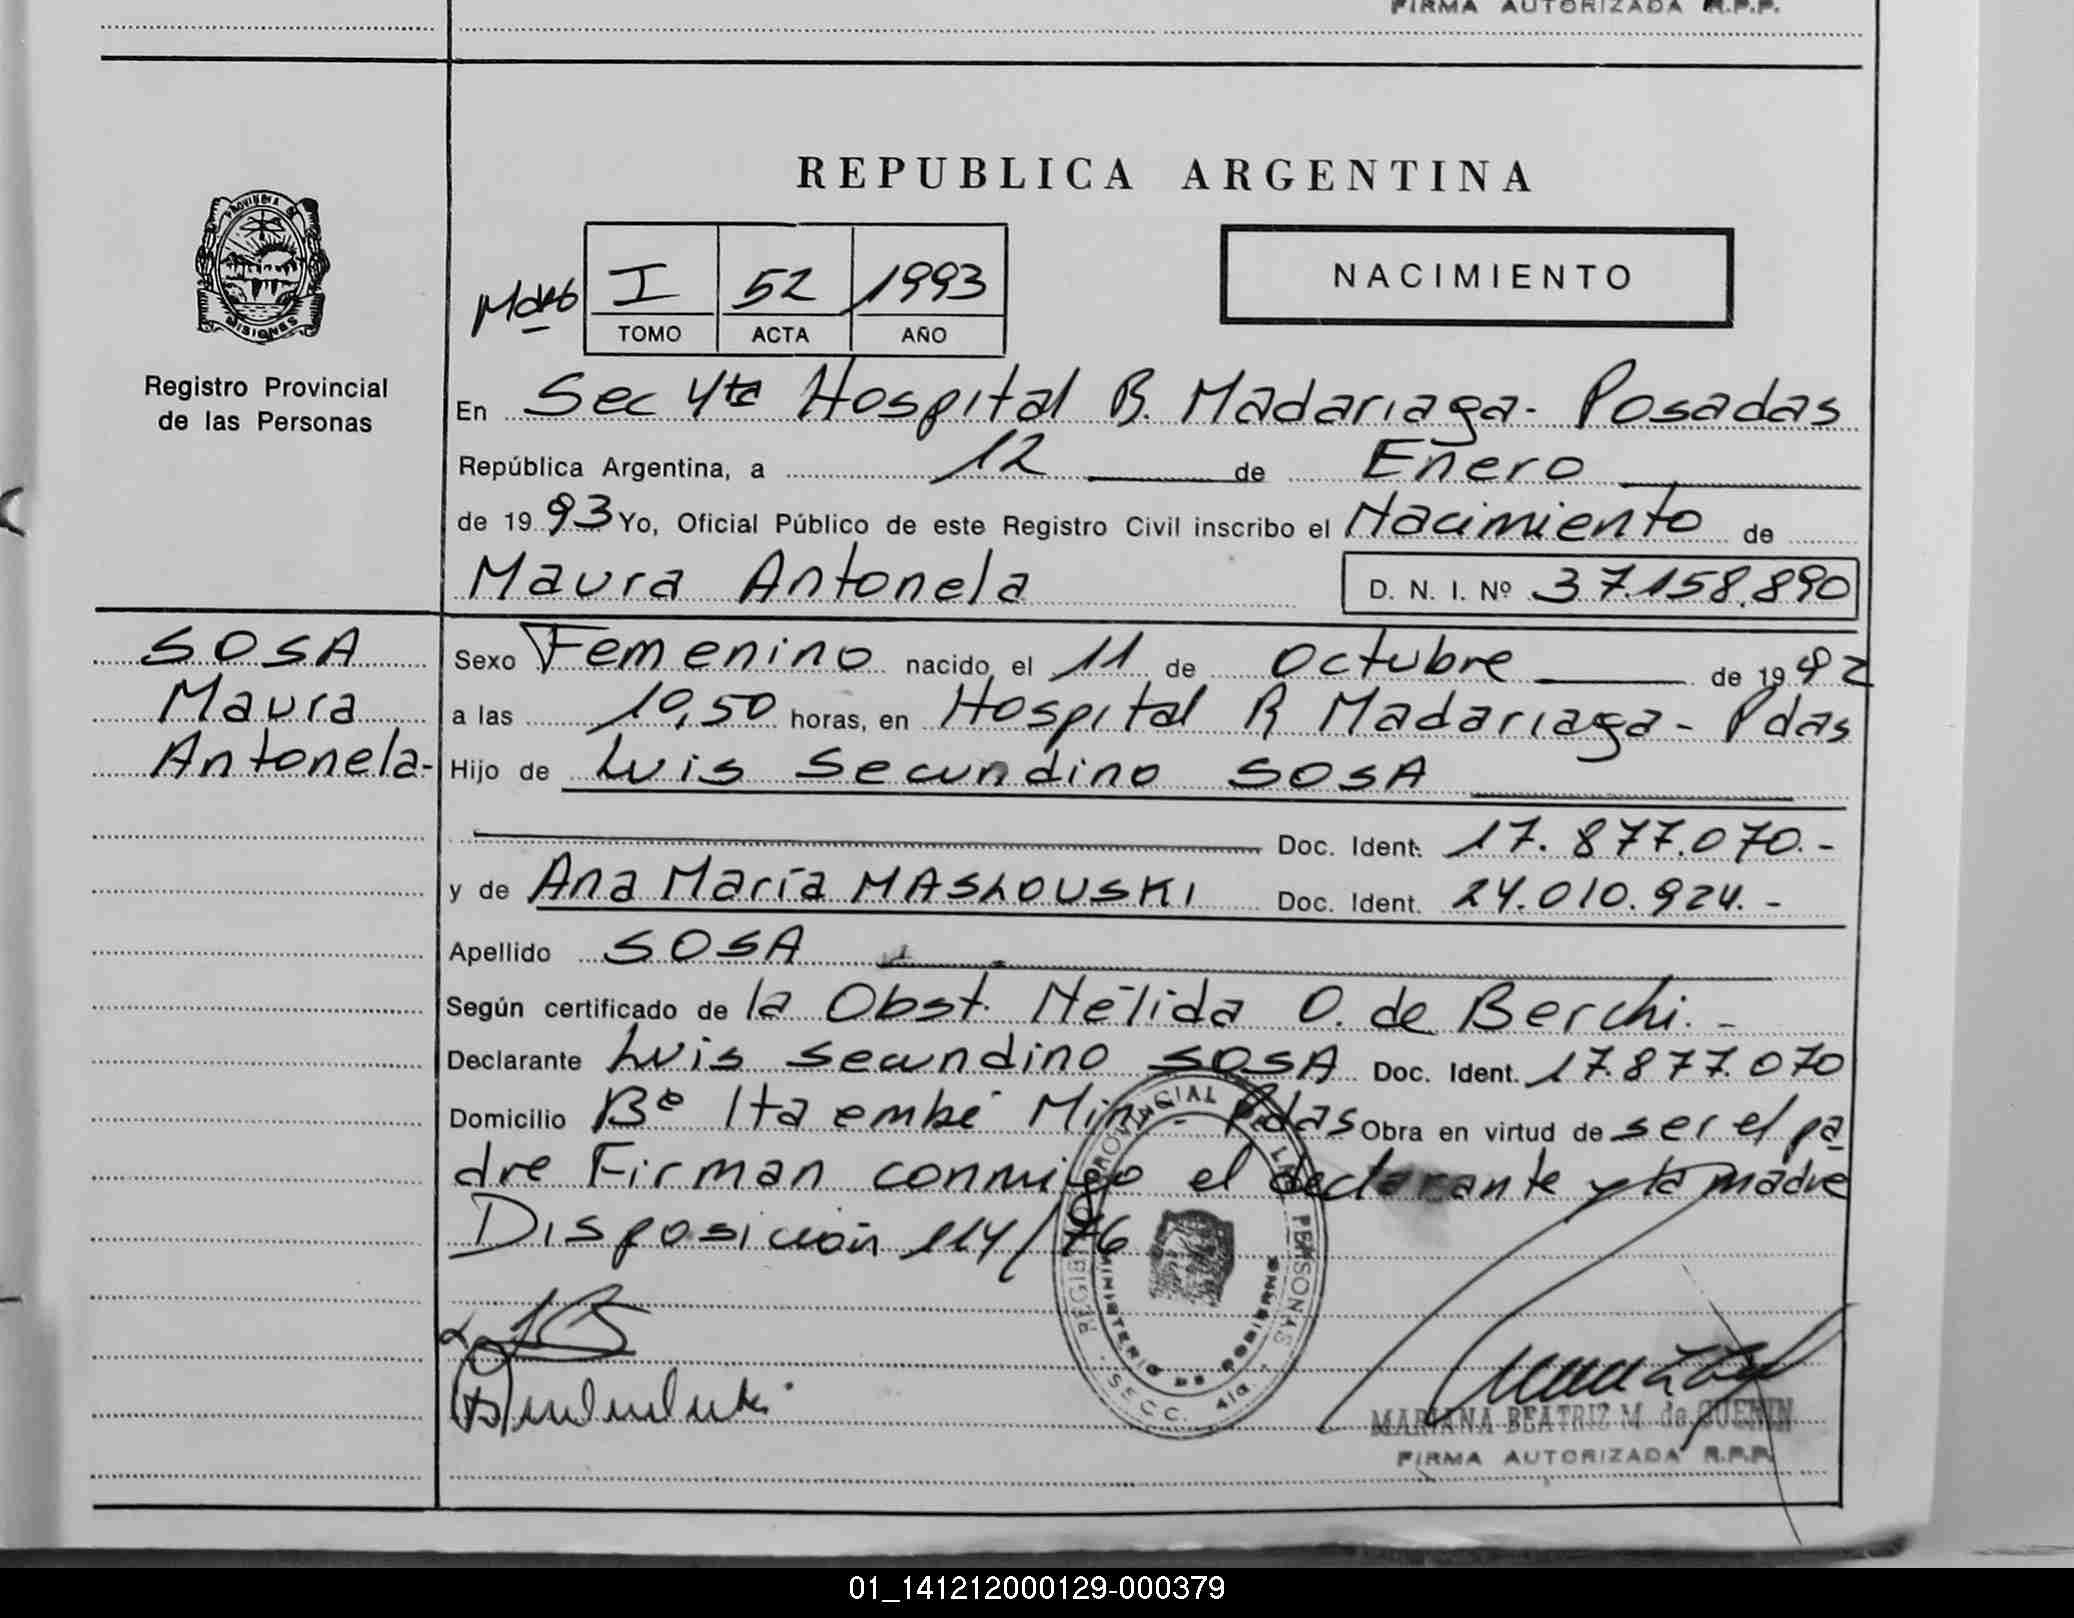 FIRMA AUTORIZADA R.P.P.
REPUBLICA ARGENTINA
PROVINCIA DE MISIONES
Registro Provincial
de las Personas
I 52 1993
TOMO ACTA AÑO
NACIMIENTO
En Sec 4ta Hospital R. Madariaga - Posadas
República Argentina, a 12 de Enero
de 1993 Yo, Oficial Público de este Registro Civil inscribo el Nacimiento de
Maura Antonela D. N. I. Nº 37.158.890
SOSA
Maura
Antonela-
Sexo Femenino nacido el 11 de octubre de 1992
a las 10,50 horas, en Hospital R Madariaga - Pdas
Hijo de Luis Secundino SOSA
Doc. Ident. 17.877.070.-
y de Ana María MASLOUSKI Doc. Ident. 24.010.924.-
Apellido SOSA
Según certificado de la Obst. Nélida O. de Berchi.-
Declarante Luis Secundino SOSA Doc. Ident. 17.877.070
Domicilio Bº Itaembé Mini - Pdas Obra en virtud de ser el pa
dre Firman conmigo el declarante y la madre
Disposición 114/76
REGISTRO PROVINCIAL DE LAS PERSONAS
MINISTERIO DE GOBIERNO
SECC. 4ta.
MARIANA BEATRIZ M. de GUENIN
FIRMA AUTORIZADA R.P.P.
01_141212000129-000379